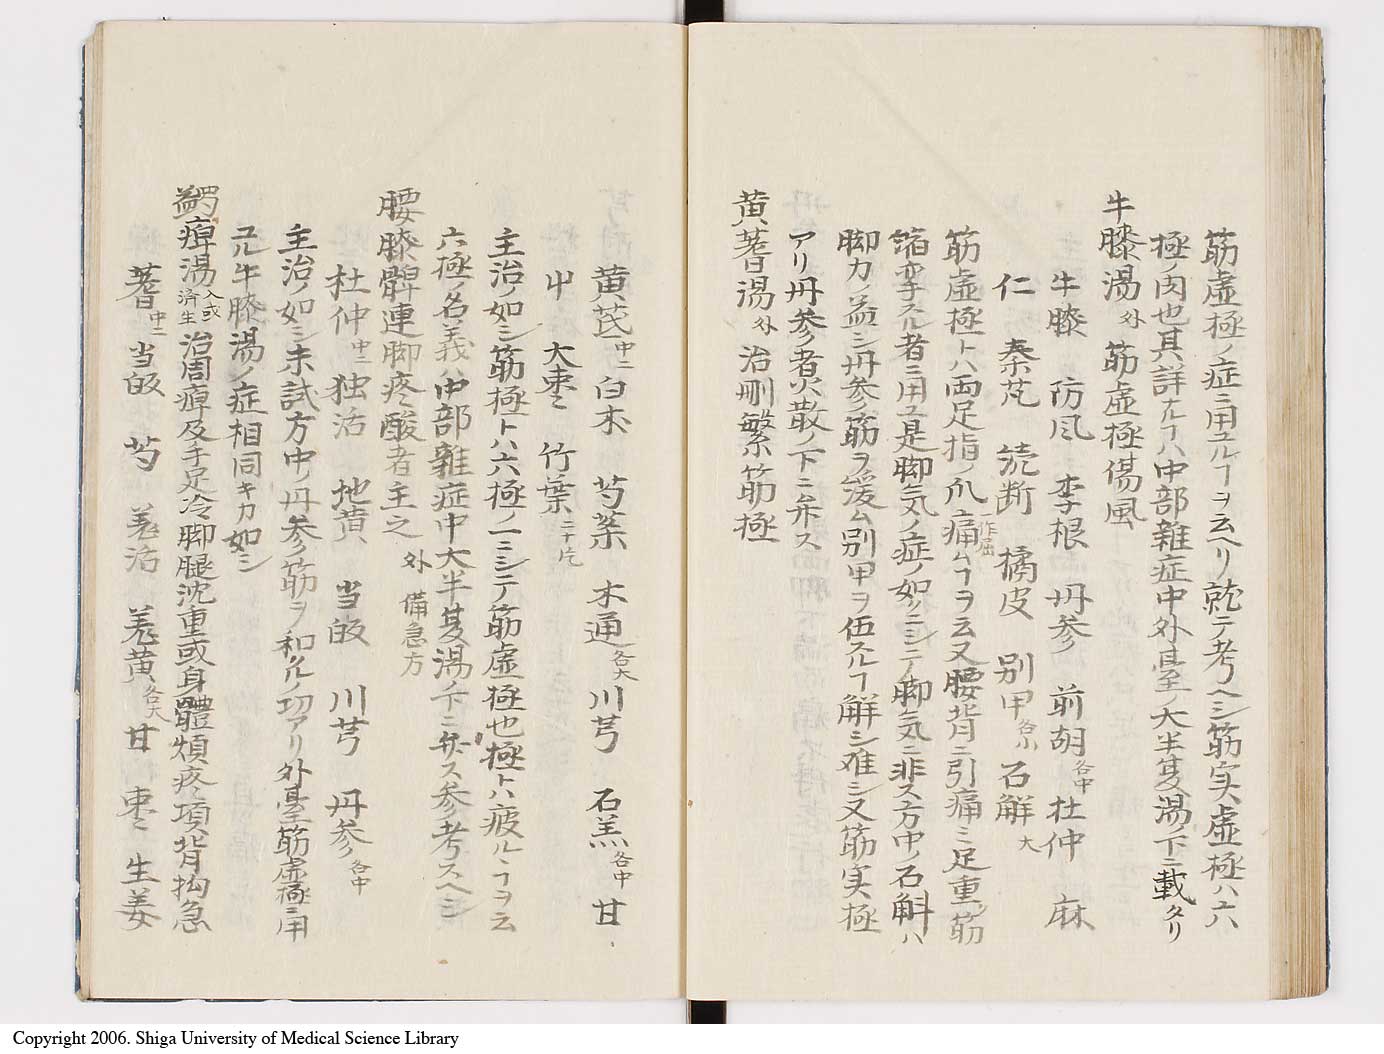 筋虚極ノ症ニ用ユルヿヲ云ヘリ就テ考ヘシ筋実虚極ハ六
極ノ内也其詳ナルヿハ中部雜症中外臺ノ大半夏湯ノ下ニ載タリ
牛膝湯 外 筋虚極傷風
牛膝 防风 李根 丹参 前胡 各中 杜仲 麻
仁 秦芃 続断 橘皮 別甲 各小 石解 大
筋虚極トハ両足指ノ爪痛ムヿヲ云又腰背ニ引痛ミ足重ク筋
縮変スル者ニ用ユ是脚気ノ症ノ如ソニシテ脚気ニ非ス方中ノ石斛ハ
脚力ノ益シ丹参ノ筋ヲ緩ム別甲ヲ伍スルヿ解シ難シ又筋実極
アリ丹参者火散ノ下ニ弁ス
黄蓍湯 外 治刪繁筋極
黄芪 中二 白朮 芍薬 木通 各大 川芎 石羔 各中 甘
中 大棗 竹葉 二十片
主治ノ如シ筋極トハ六極ノ一ニシテ筋虚極也極トハ疲ルヽヿヲ云
六極ノ名義ハ中部雜症中大半夏湯ノ下ニ弁ス参考スヘシ
腰膝髀連脚疼酸者主之 外 備急方
杜仲 中二 独活 地黄 当皈 川芎 丹参 各中
主治ノ如シ未試方中ノ丹参ノ筋ヲ和クルノ功アリ外臺筋虚極ニ用
ユル牛膝湯ノ症相同キカ如シ
蠲痺湯 入或 済生 治周痺及手足冷脚腿沈重或身體煩疼項背拘急
蓍 中二 当皈 芍 羗活 羗黄 各大 甘 棗 生姜